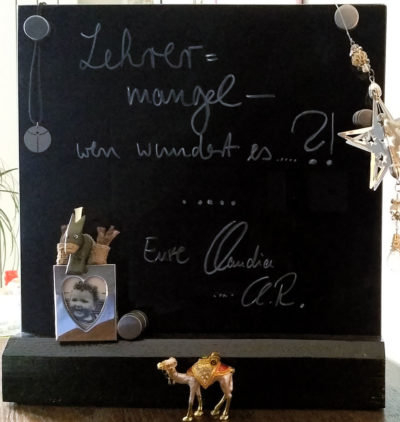 Lehrer=
mangel –
wen wundert es.....?!
.....
Eure Claudia
... A.R.